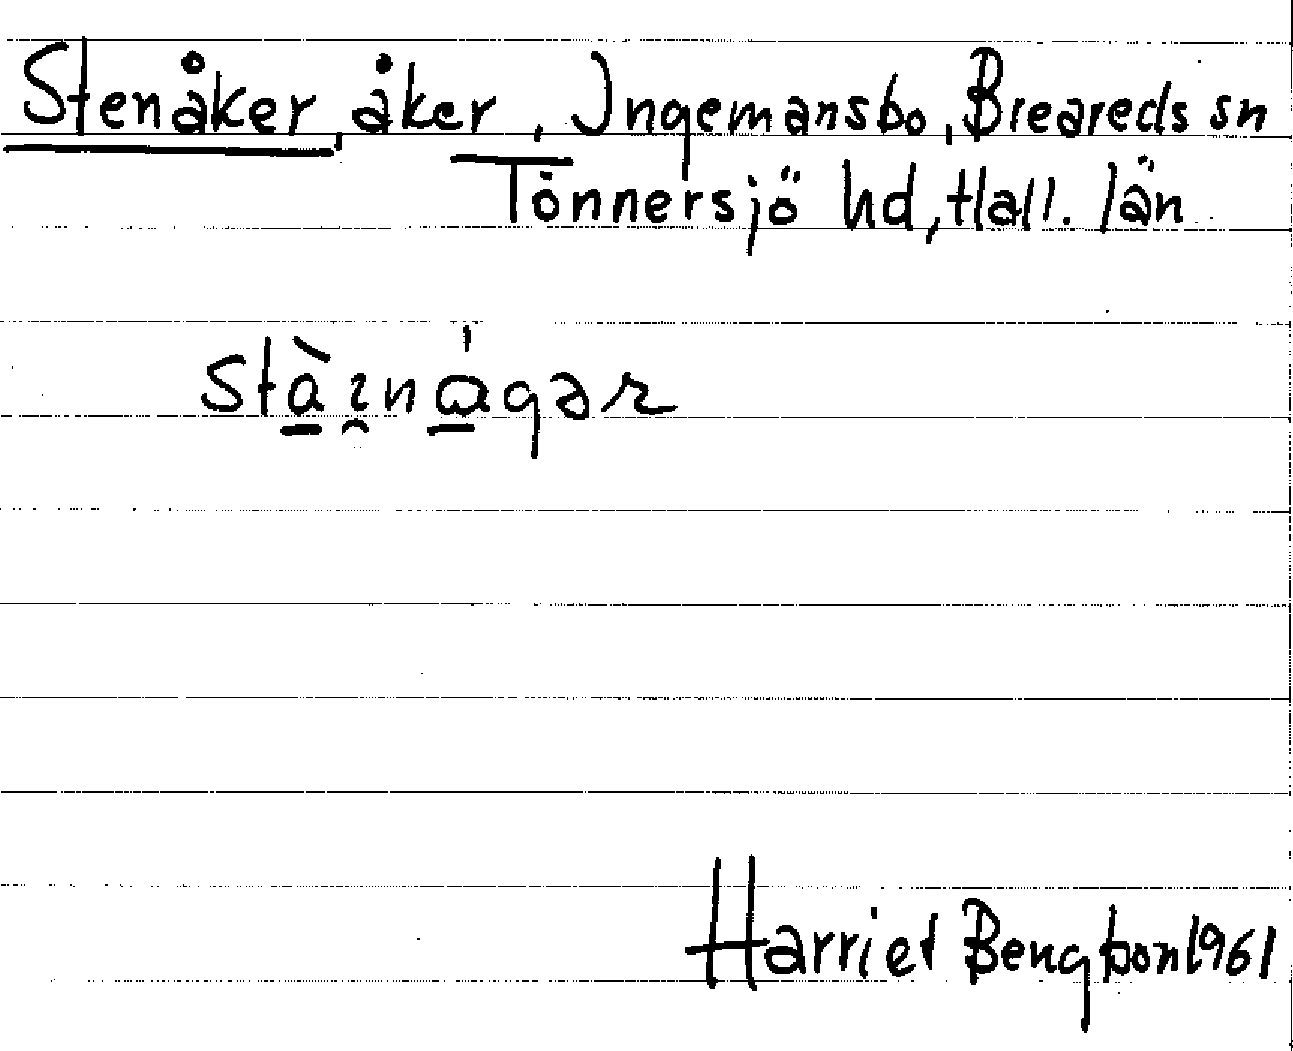 Stenåker, åker, Ingemansbo, Breareds sn
Tönnersjö hd, Hall. län
Harriet Bengtson 1961